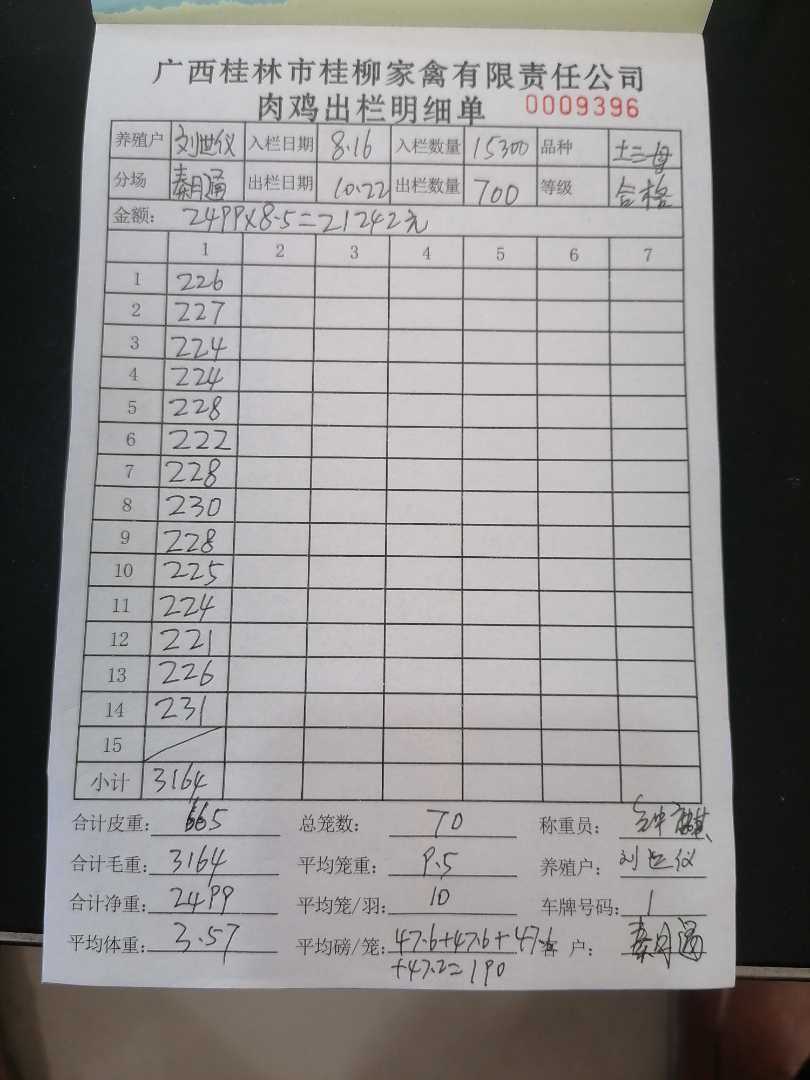 广西桂林市桂柳家禽有限责任公司
肉鸡出栏明细单 0009396
养殖户 刘世仪 入栏日期 8.16 入栏数量 15300 品种 土二母
分场 秦月通 出栏日期 10.22 出栏数量 700 等级 合格
金额: 2499×8.5=21242元
1 2 3 4 5 6 7
1 226
2 227
3 224
4 224
5 228
6 222
7 228
8 230
9 228
10 225
11 224
12 221
13 226
14 231
15
小计 3164
合计皮重: 665 总笼数: 70 称重员:
合计毛重: 3164 平均笼重: 9.5 养殖户: 刘世仪
合计净重: 2499 平均笼/羽: 10 车牌号码: 1
平均体重: 3.57 平均磅/笼: 47.6+47.6+47.6 客户: 秦月通
+47.2=190